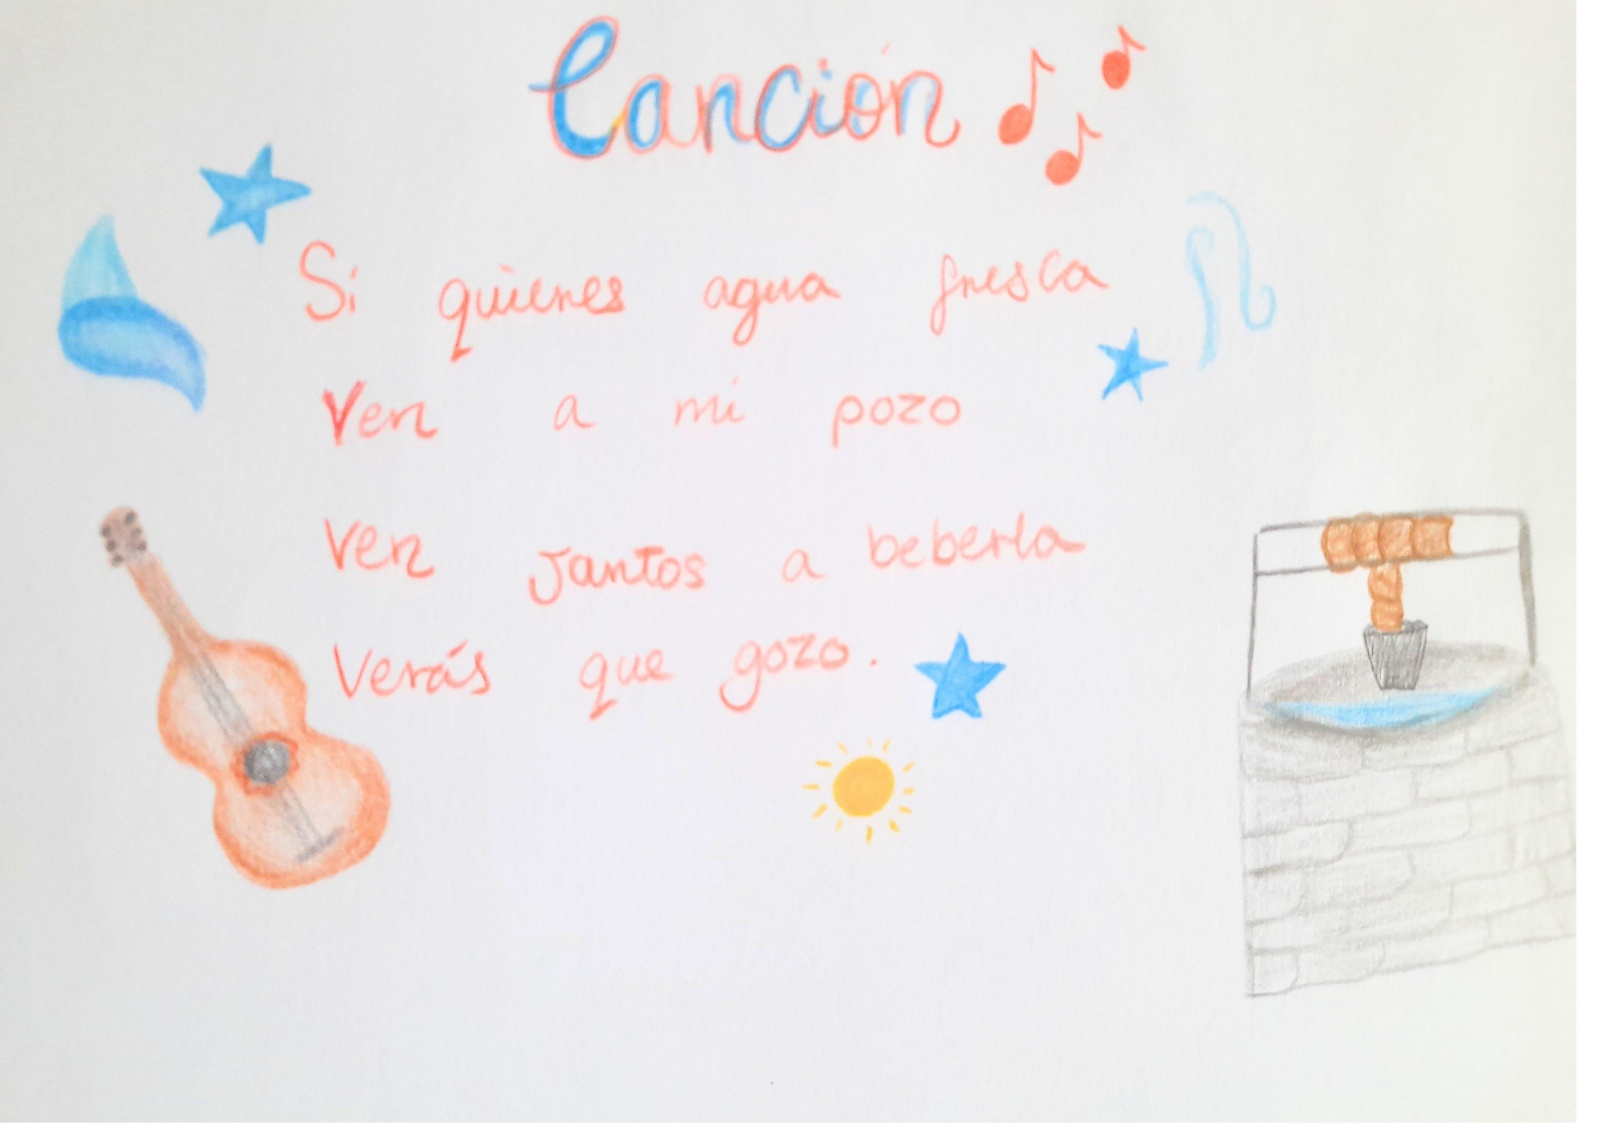 Canción
Si quieres agua fresca
Ven a mi pozo
Ven Jantos a beberla
Verás que gozo.